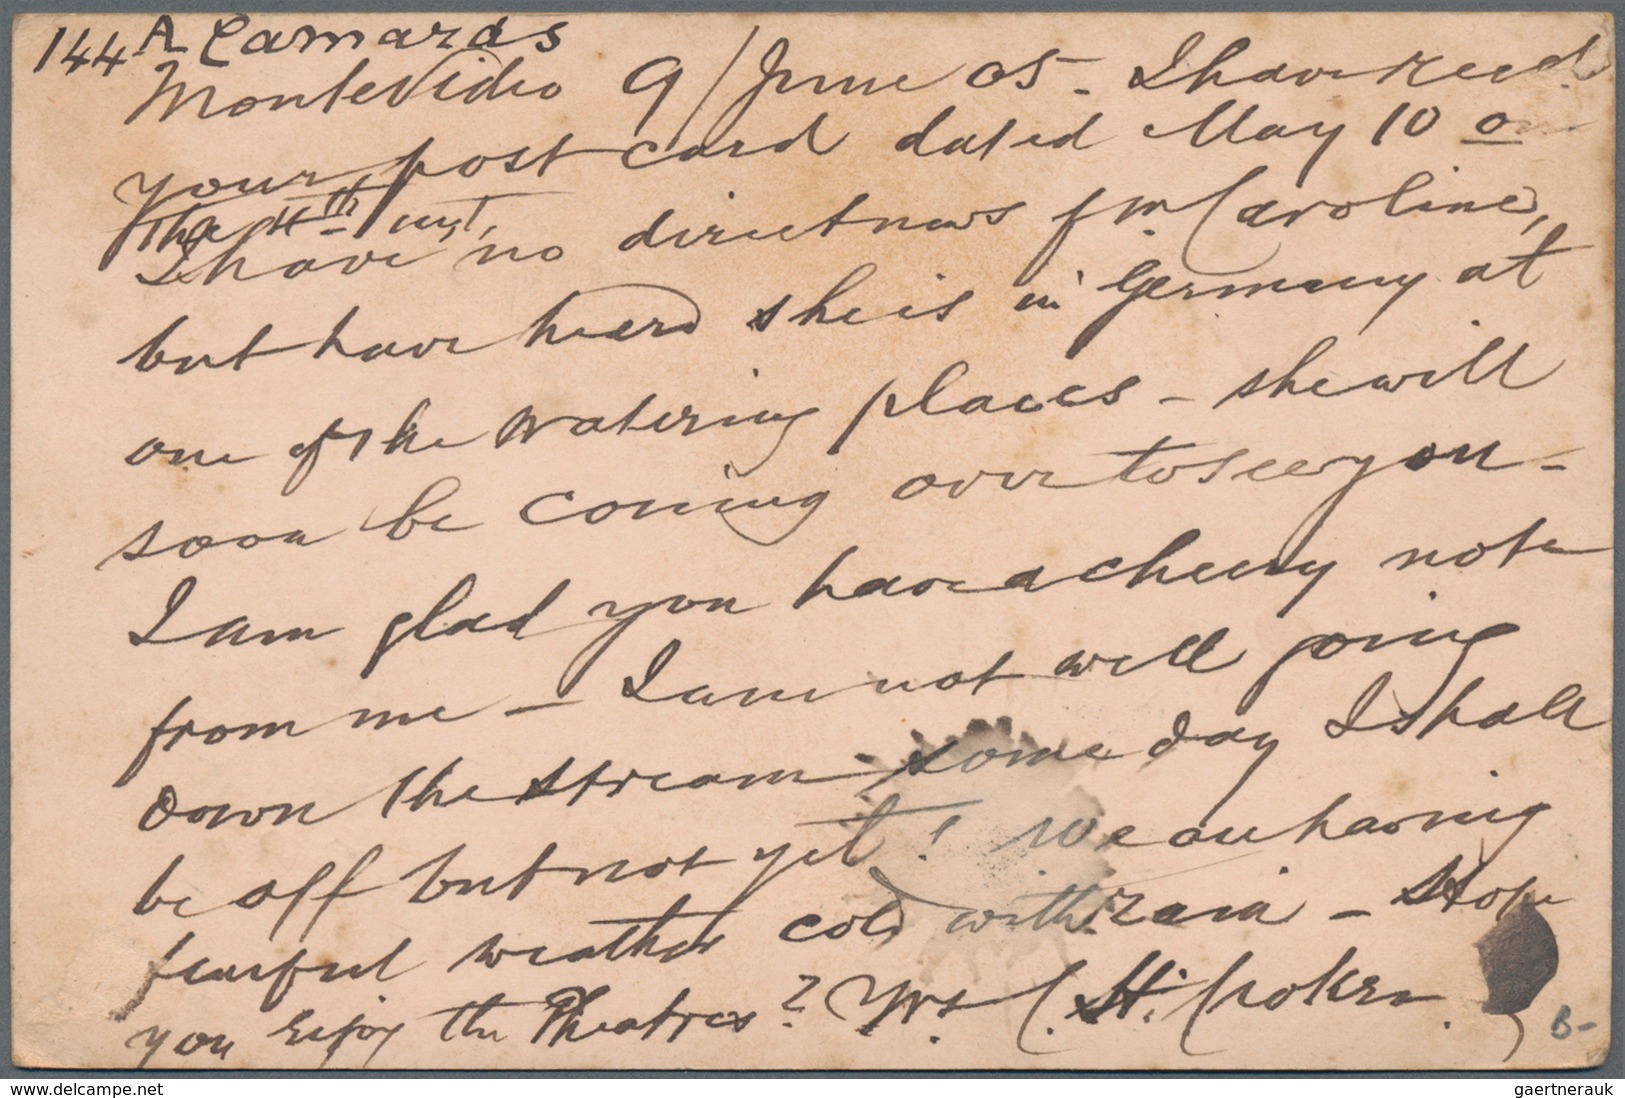 144 A Camaras
Montevideo 9/June 05 - I have recd.
your post card dated May 10 on
the 4th inst,
I have no direct news fm Caroline,
but have heard she is in Germany at
one of the watering places - she will
soon be coming over to see you -
I am glad you have a cheery note
from me - I am not well going
down the stream some day I shall
be off but not yet! We are having
fearful weather cold with rain - Hope
you enjoy the Theatres? Yrs C. H.
B-
www.delcampe.net
gaertnerauk